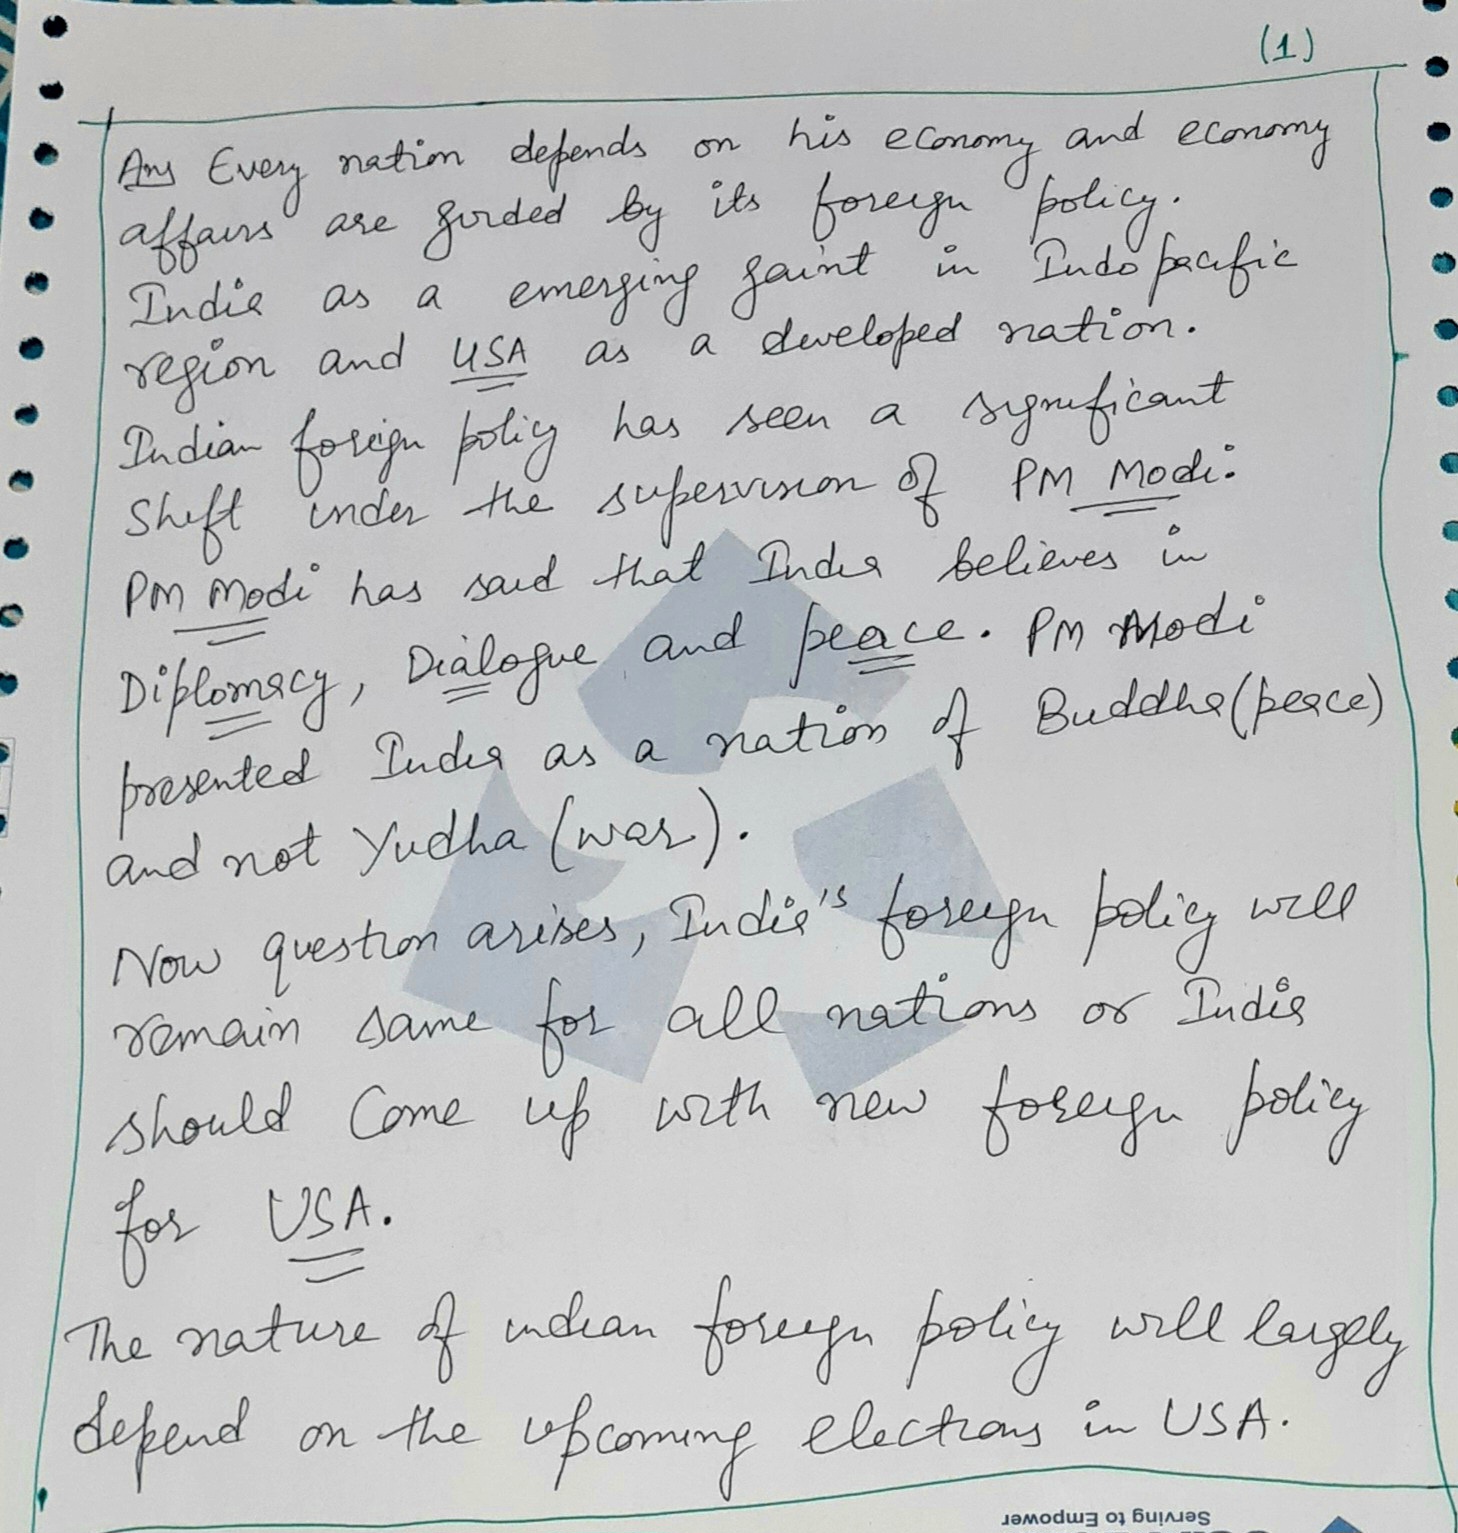 (1)
Ans Every nation depends on his economy and economy
affairs are guided by its foreign policy.
India as a emerging gaint in Indo pacific
region and USA as a developed nation.
Indian foreign policy has seen a significant
Shift under the supervision of PM Modi.
PM Modi has said that India believes in
Diplomacy, Dialogue and peace. PM Modi
presented India as a nation of Buddha (peace)
and not Yudha (war).
Now question arises, India's foreign policy will
remain same for all nations or India
should Come up with new foreign policy
for USA.
The nature of indian foreign policy will largely
depend on the upcoming elections in USA.
Serving to Empower